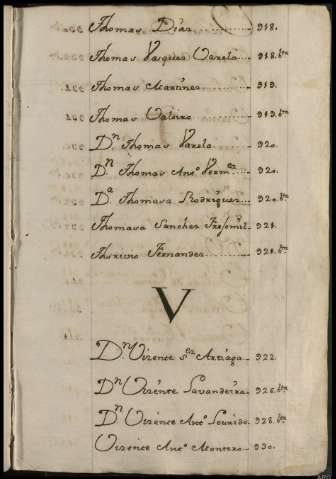 Thomas Días 918.
Thomas Vasques Varela 918.bta
Thomas Martines 919.
Thomas Valeiro 919.bta
Dn Thomas Varela 920.
Dn Thomas Anto 920.
Da Thomasa Rodrigues 920.bta
Thomasa Sanches 921.
Fernandes 921.bta
V
Dn Vizente Artiaga 922.
Dn Vizente Lavandeira 926.bta
Dn Vizente Anto Lourido 928.bta
Vizente Anto Montero 930.